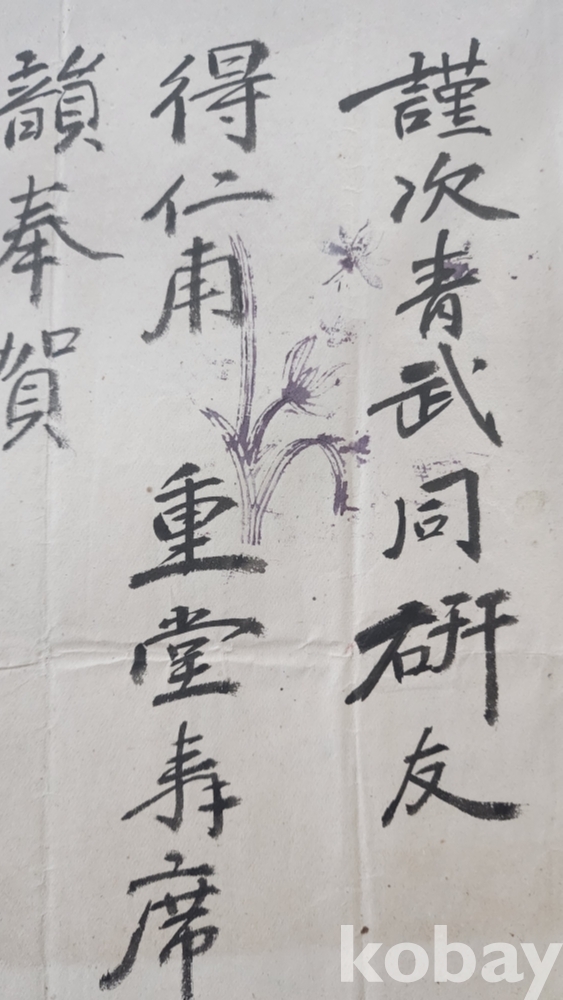 謹次青武同研友
得仁甫 重堂壽席
韻奉賀
kobay